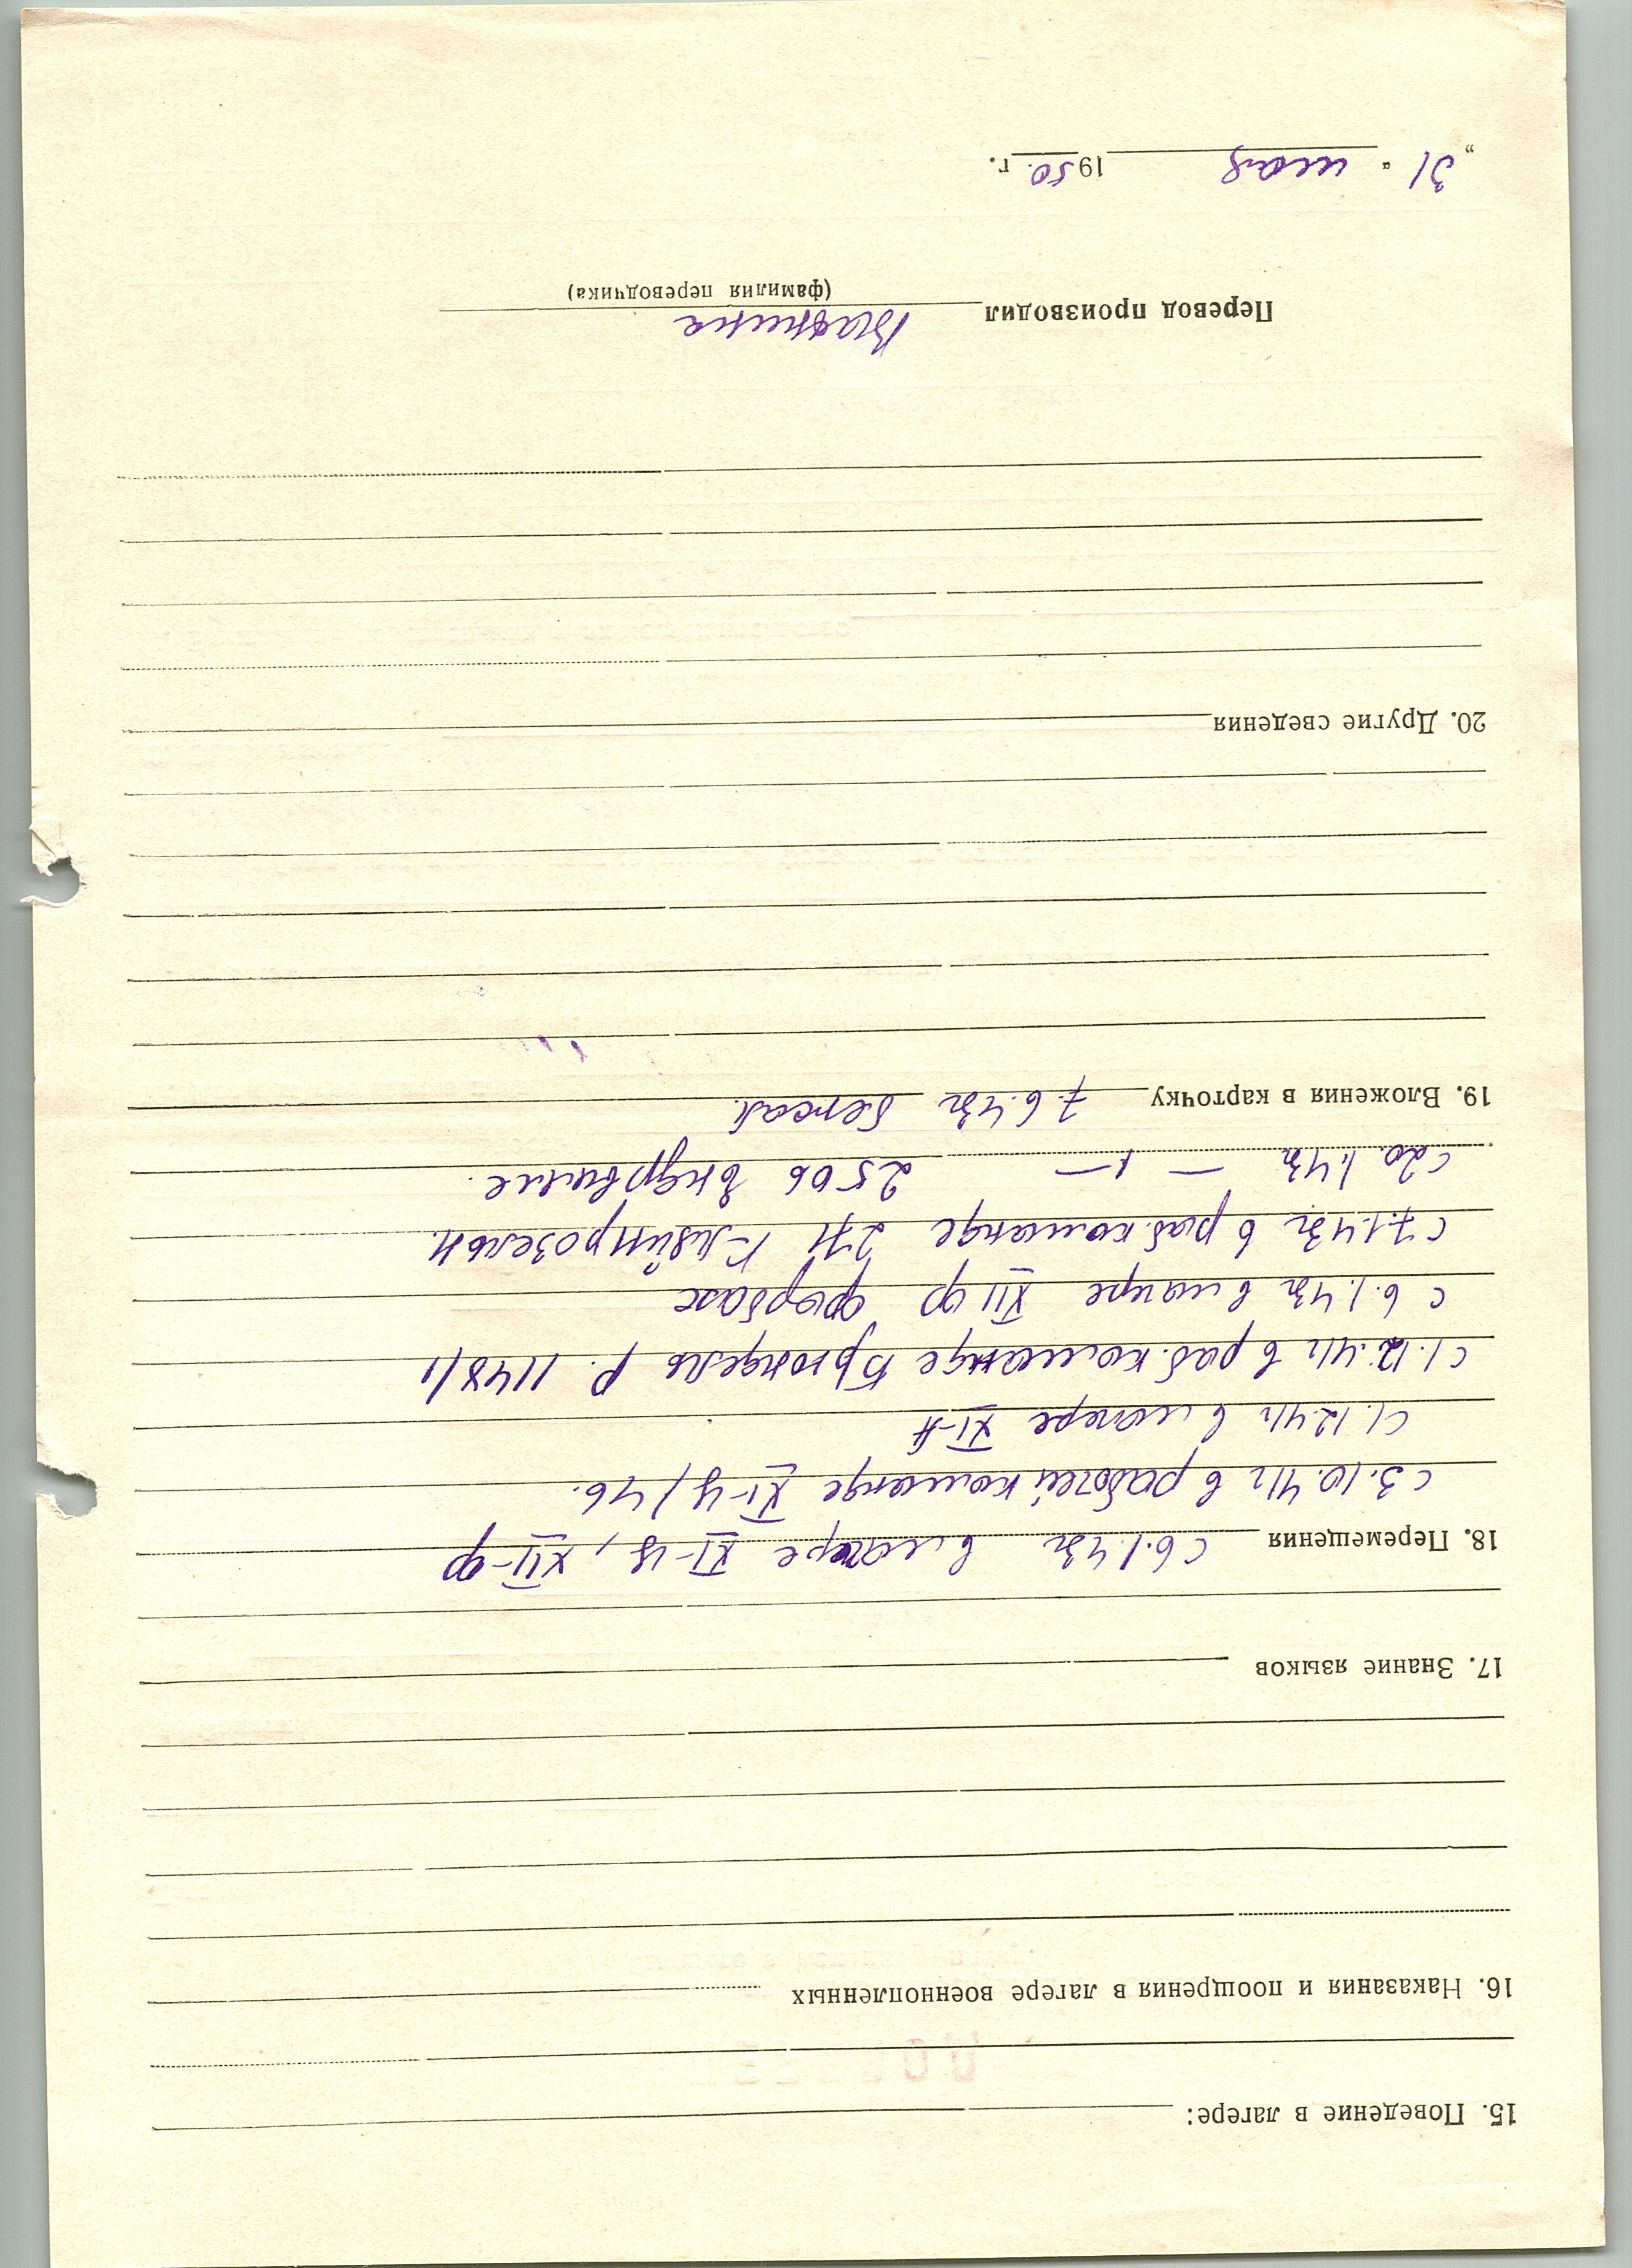 15. Поведение в лагере:
16. Наказания и поощрения в лагере военнопленных
17. Знание языков
18. Перемещения с 6.1.43г в лагере XI-ц, XII-ф
с 3.10.41г в рабочей команде XI-ц/46.
с 1.12.41г в лагере XI-А
с 1.12.41г в раб. команде Брюндель Р. 1148/1
с 6.1.43г в лагере XII ф форбах
с 7.1.43г в раб. команде 271
с 20.1.43г — " — 2506
19. Вложения в карточку 7.6.43г бежал.
20. Другие сведения
Перевод производил
(фамилия переводчика)
„31“ мая 1950. г.